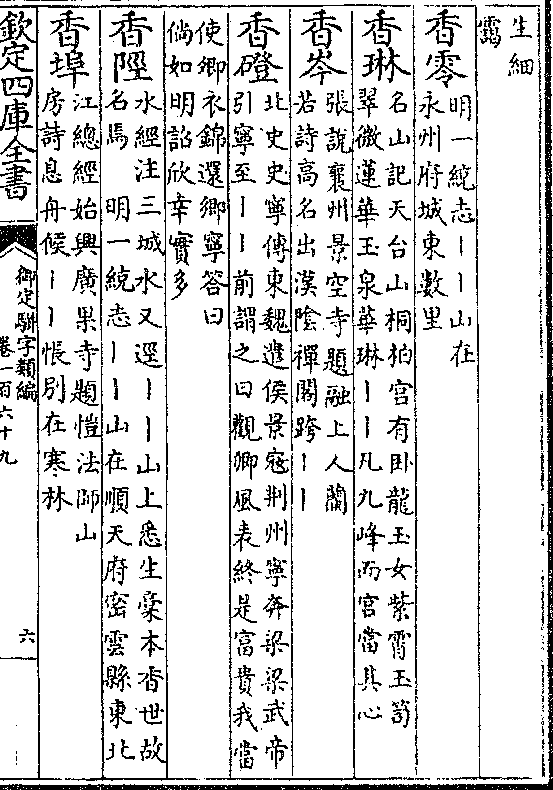 生細
靄
香零明一統志丨丨山在
永州府城東數里
香琳名山記天台山桐柏宮有卧龍玉女紫霄玉笥
翠微蓮華玉泉華琳丨丨凡九峰而宮當其心
香岑張說襄州景空寺題融上人蘭
若詩高名出漢陰禪閣跨丨丨
香磴北史史寧傳東魏遣侯景寇荆州寧奔梁梁武帝
引寧至丨丨前謂之曰觀卿風表終是富貴我當
使卿衣錦還鄉寧答曰
倘如明詔欣幸實多
香陘水經注三城水又逕丨丨山上悉生稾本香世故
名焉 明一統志丨丨山在順天府密雲縣東北
香埠江總經始興廣果寺題愷法師山
房詩息舟候丨丨悵別在寒林
欽定四庫全書
御定駢字類編
卷一百六十九
六